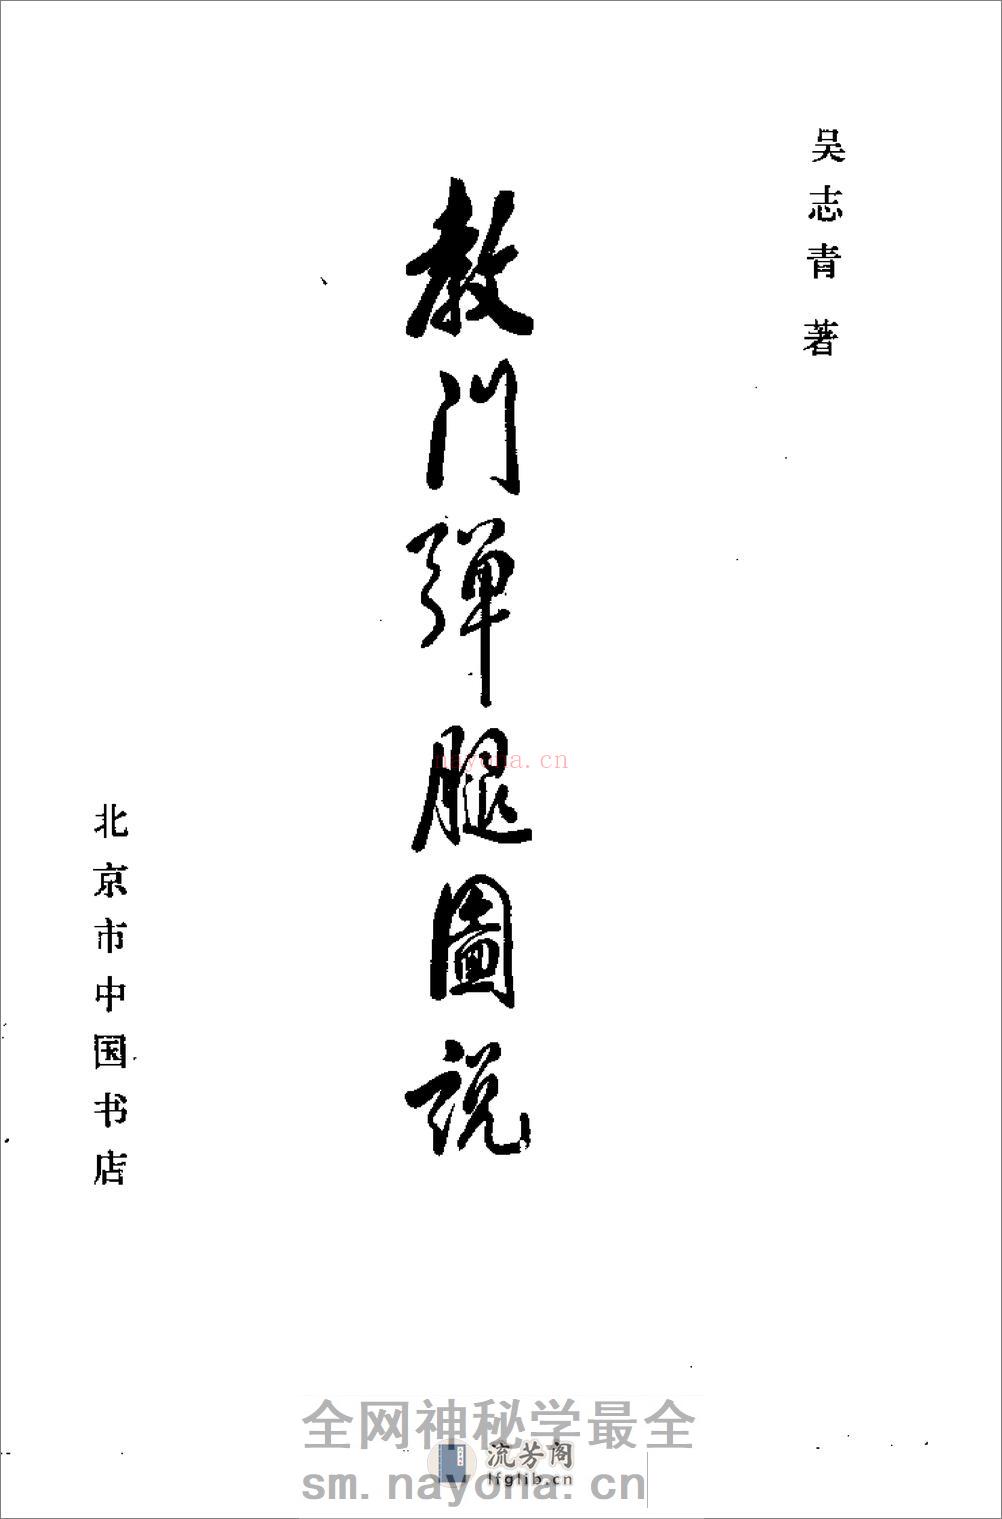 吴志青 著
教门弹腿圖说
北京市中国书店
nayona.cn
全网神秘学最全
流芳阁
lfglib.cn
sm.nayona.cn